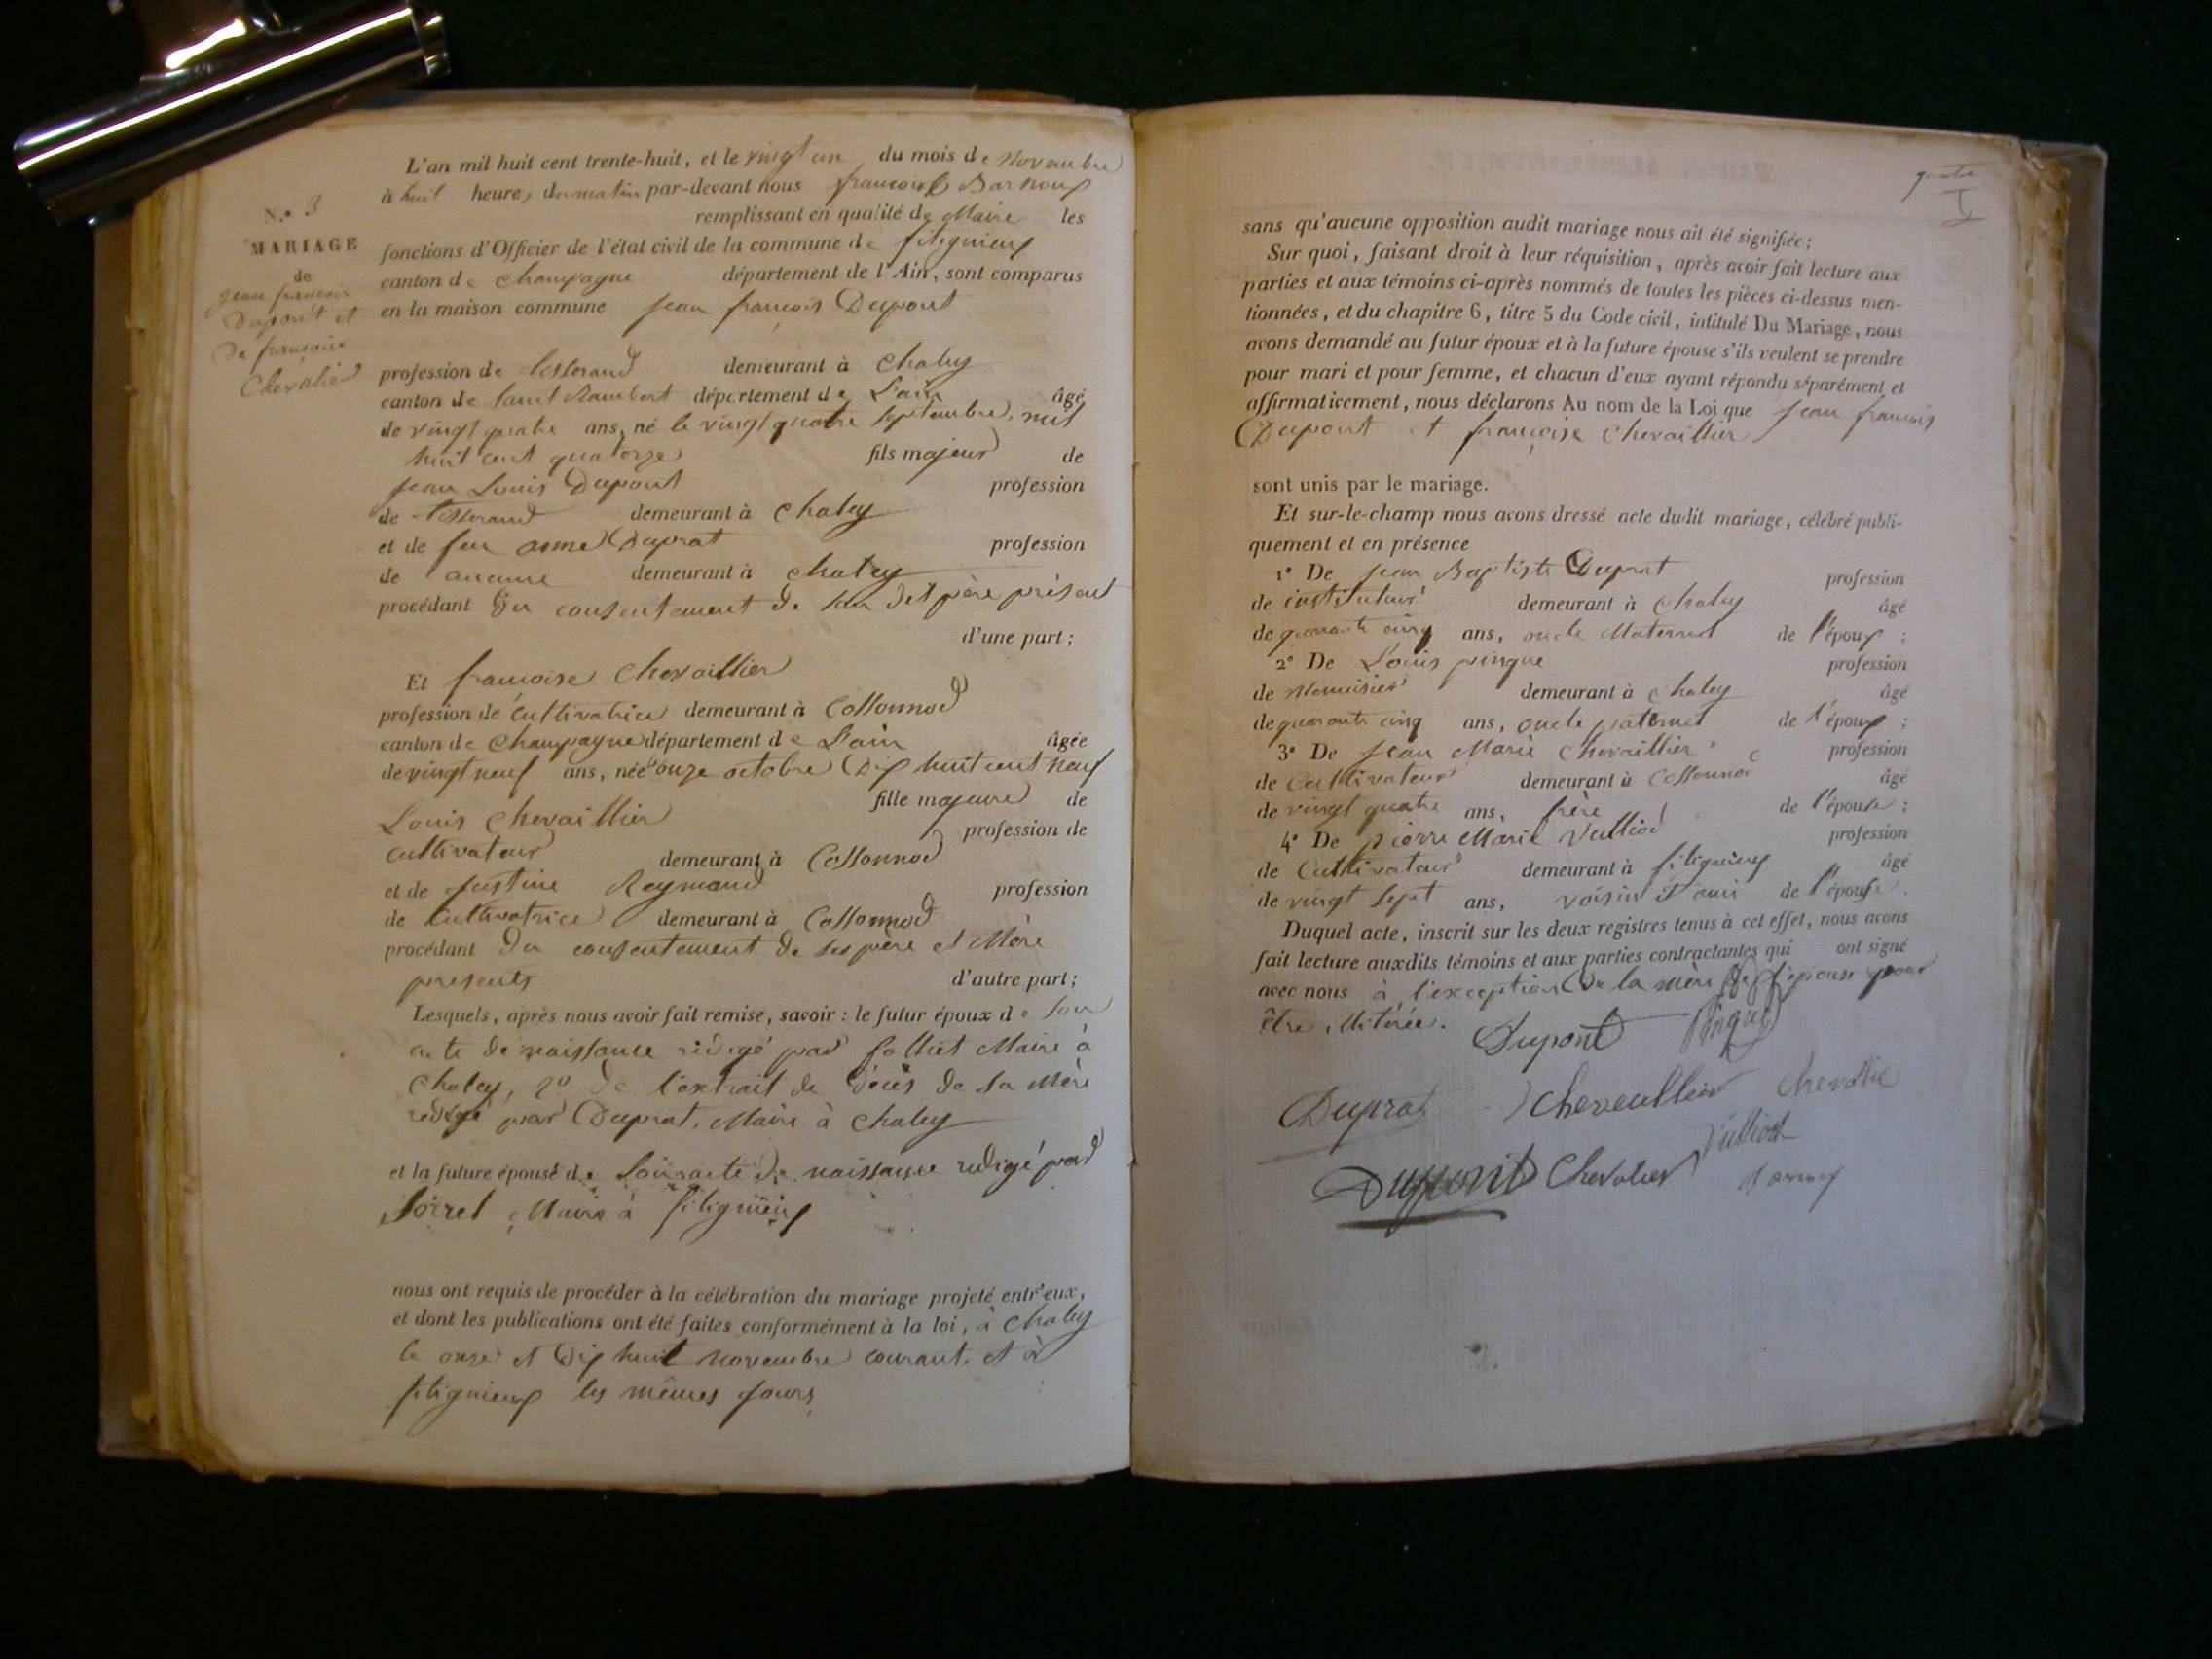 N.º 3
MARIAGE
de
jean francois
Dupont et
De francoise
Chevalier
L'an mil huit cent trente-huit, et le vingt un du mois de Novembre
à huit heures du matin par-devant nous francois Barnoux
remplissant en qualité de Maire les
fonctions d'Officier de l'état civil de la commune de fitignieux
canton de Champagne département de l'Ain, sont comparus
en la maison commune jean françois Dupont
profession de tisserand demeurant à Chaley
canton de saint Rambert département de L'ain âgé
de vingt quatre ans, né le vingt quatre septembre, mil
huit cent quatorze fils majeur de
jean Louis Dupont profession
de tisserand demeurant à Chaley
et de feu anne Duprat profession
de aucune demeurant à chaley
procédant Du consentement de son dit père présent
d'une part ;
Et françoise Chevaillier
profession de cultivatrice demeurant à Cossonnod
canton de Champagne département de L'ain âgée
de vingt neuf ans, née onze octobre Dix huit cent neuf
fille majeure de
Louis Chevaillier profession de
cultivateur demeurant à Cossonnod
et de justine Reymond profession
de Cultivatrice demeurant à Cossonnod
procédant Du consentement de ses père et Mère
presents d'autre part ;
Lesquels, après nous avoir fait remise, savoir : le futur époux de son
acte de naissance rédigé par folliet Maire à
Chaley, 2º de l'extrait de décès de sa Mère
redigé par Duprat, Maire à Chaley
et la future épouse de son acte de naissance redigé par
Maire à fitignieux
nous ont requis de procéder à la célébration du mariage projeté entr'eux,
et dont les publications ont été faites conformément à la loi, à Chaley
le onze et Dix huit novembre courant, et à
fitignieux les mêmes jours
sans qu'aucune opposition audit mariage nous ait été signifiée ;
Sur quoi, faisant droit à leur réquisition, après avoir fait lecture aux
parties et aux témoins ci-après nommés de toutes les pièces ci-dessus men-
tionnées, et du chapitre 6, titre 5 du Code civil, intitulé Du Mariage, nous
avons demandé au futur époux et à la future épouse s'ils veulent se prendre
pour mari et pour femme, et chacun d'eux ayant répondu séparément et
affirmativement, nous déclarons Au nom de la Loi que jean francois
Dupont et françoise Chevaillier
sont unis par le mariage.
Et sur-le-champ nous avons dressé acte dudit mariage, célébré publi-
quement et en présence
1º De jean Baptiste Duprat profession
de instituteur demeurant à Chaley âgé
de quarante cinq ans, oncle Maternel de l'époux ;
2º De Louis pingue profession
de Menuisier demeurant à Chaley âgé
de quarante cinq ans, oncle paternel de l'époux ;
3º De jean Marie Chevaillier profession
de Cultivateur demeurant à Cossonnod âgé
de vingt quatre ans, frère de l'épouse ;
4º De pierre Marie Vulliod profession
de Cultivateur demeurant à fitignieux âgé
de vingt sept ans, voisin et ami de l'épouse.
Duquel acte, inscrit sur les deux registres tenus à cet effet, nous avons
fait lecture auxdits témoins et aux parties contractantes qui ont signé
avec nous à l'exception De la mère de l'épouse pour
être illitérée.
Dupont Pingue
Duprat Cheveallier chevallie
Vulliod
Dupont Chevalier Barnoux